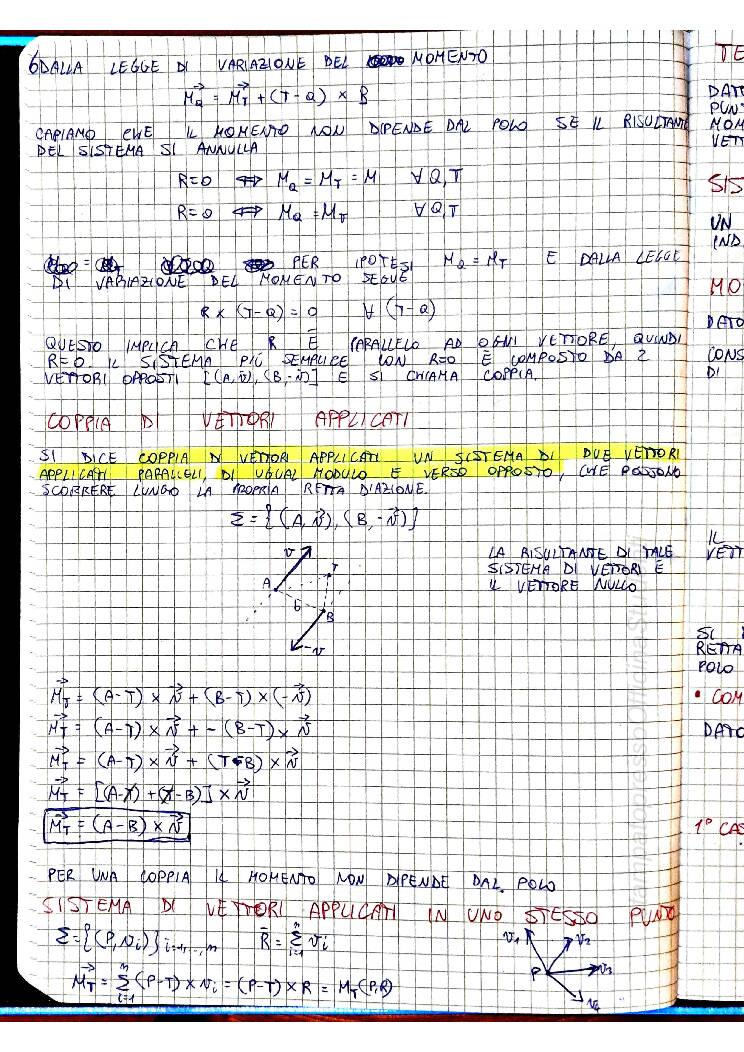 6 DALLA LEGGE DI VARIAZIONE DEL MOMENTO
M_Q = M_T + (T-Q) × R
CAPIAMO CHE IL MOMENTO NON DIPENDE DAL POLO SE IL RISULTANTE
DEL SISTEMA SI ANNULLA
R=0 ⟺ M_Q = M_T = M ∀ Q,T
R=0 ⟺ M_Q = M_T ∀ Q,T
PER IPOTESI M_Q = M_T E DALLA LEGGE
DI VARIAZIONE DEL MOMENTO SEGUE
R × (T-Q) = 0 ∀ (T-Q)
QUESTO IMPLICA CHE R È PARALLELO AD OGNI VETTORE, QUINDI
R=0. IL SISTEMA PIÙ SEMPLICE CON R=0 È COMPOSTO DA 2
VETTORI OPPOSTI [(A,v̄),(B,-v̄)] E SI CHIAMA COPPIA.
COPPIA DI VETTORI APPLICATI
SI DICE COPPIA DI VETTORI APPLICATI UN SISTEMA DI DUE VETTORI
APPLICATI PARALLELI, DI UGUAL MODULO E VERSO OPPOSTO, CHE POSSONO
SCORRERE LUNGO LA PROPRIA RETTA D'AZIONE.
Σ = {(A,v⃗),(B,-v⃗)}
LA RISULTANTE DI TALE
SISTEMA DI VETTORI È
IL VETTORE NULLO
v
A
T
b
B
-v
M⃗_T = (A-T) × v⃗ + (B-T) × (-v⃗)
M⃗_T = (A-T) × v⃗ + - (B-T) × v⃗
M⃗_T = (A-T) × v⃗ + (T-B) × v⃗
M⃗_T = [(A-T) + (T-B)] × v⃗
M⃗_T = (A-B) × v⃗
PER UNA COPPIA IL MOMENTO NON DIPENDE DAL POLO
SISTEMA DI VETTORI APPLICATI IN UNO STESSO PUNTO
Σ = {(P,v_i)}_{i=1,...,n} R̄ = Σ_{i=1}^{n} v_i
M⃗_T = Σ_{i=1}^{n} (P-T) × v_i = (P-T) × R = M_T(P,R)
v_1
v_2
P
v_3
v_4
TE
DATO
PUN
MOM
VETT
SIS
UN
IND
MO
DATO
CONS
DI
IL
VETT
SI
RETTA
POLO
• COM
DATO
1° CAS